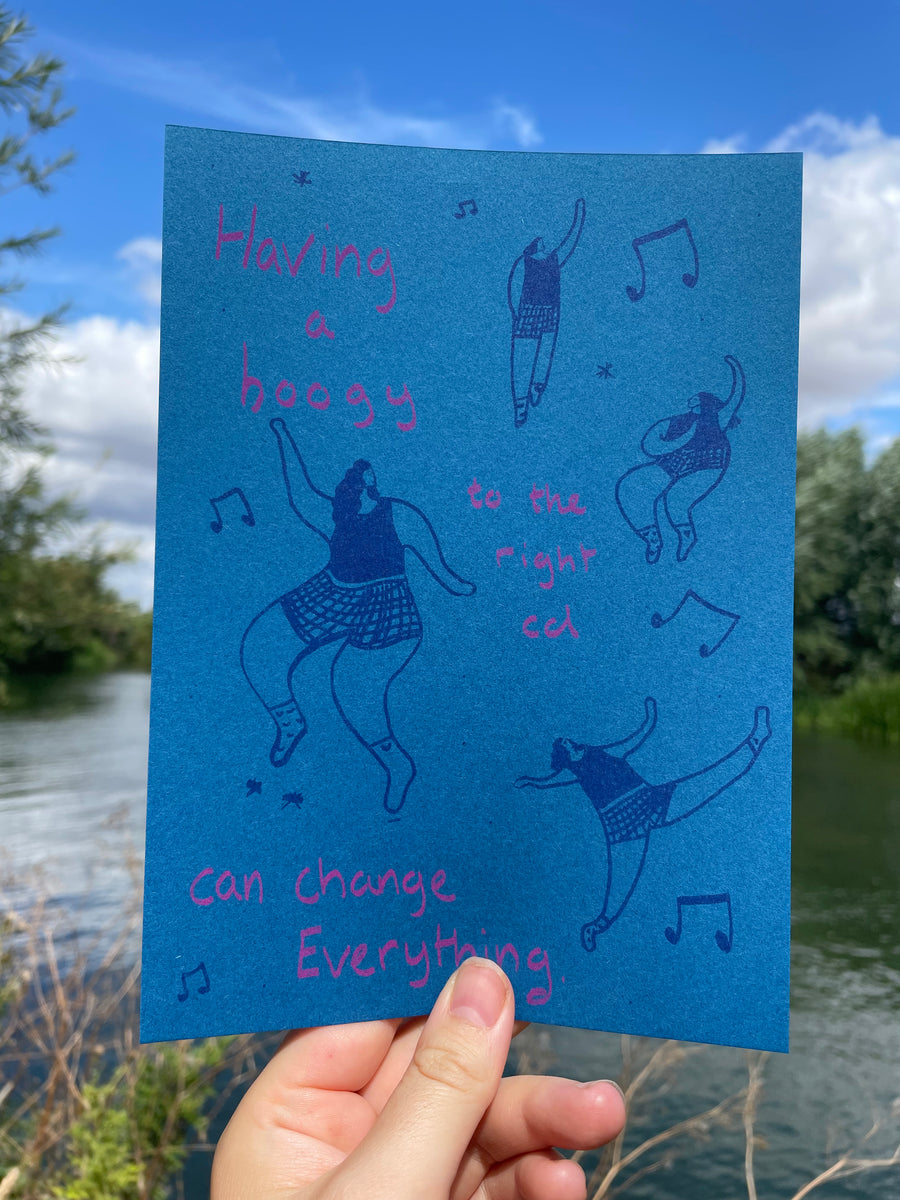 Having
a
boogy
to the
right
cd
can change
Everything.